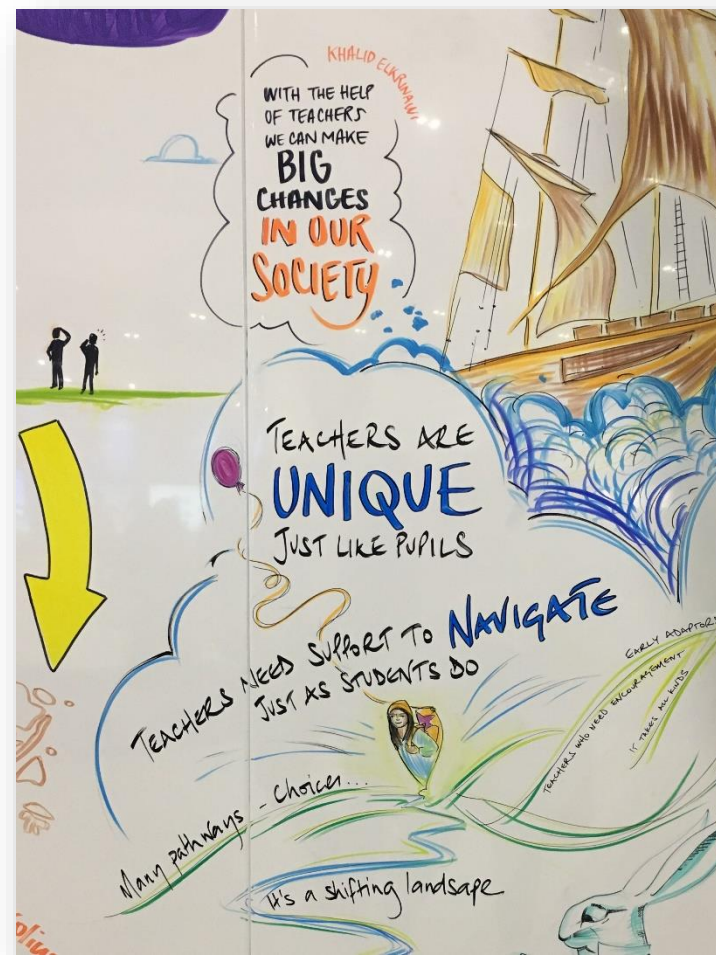 KHALID ELKRINAWI
WITH THE HELP
OF TEACHERS
WE CAN MAKE
BIG
CHANGES
IN OUR
SOCIETY
TEACHERS ARE
UNIQUE
JUST LIKE PUPILS
TEACHERS NEED SUPPORT TO NAVIGATE
JUST AS STUDENTS DO
EARLY ADAPTORS
TEACHERS WHO NEED ENCOURAGEMENT
IT TAKES ALL KINDS
Many pathways... Choices...
It's a shifting landsape